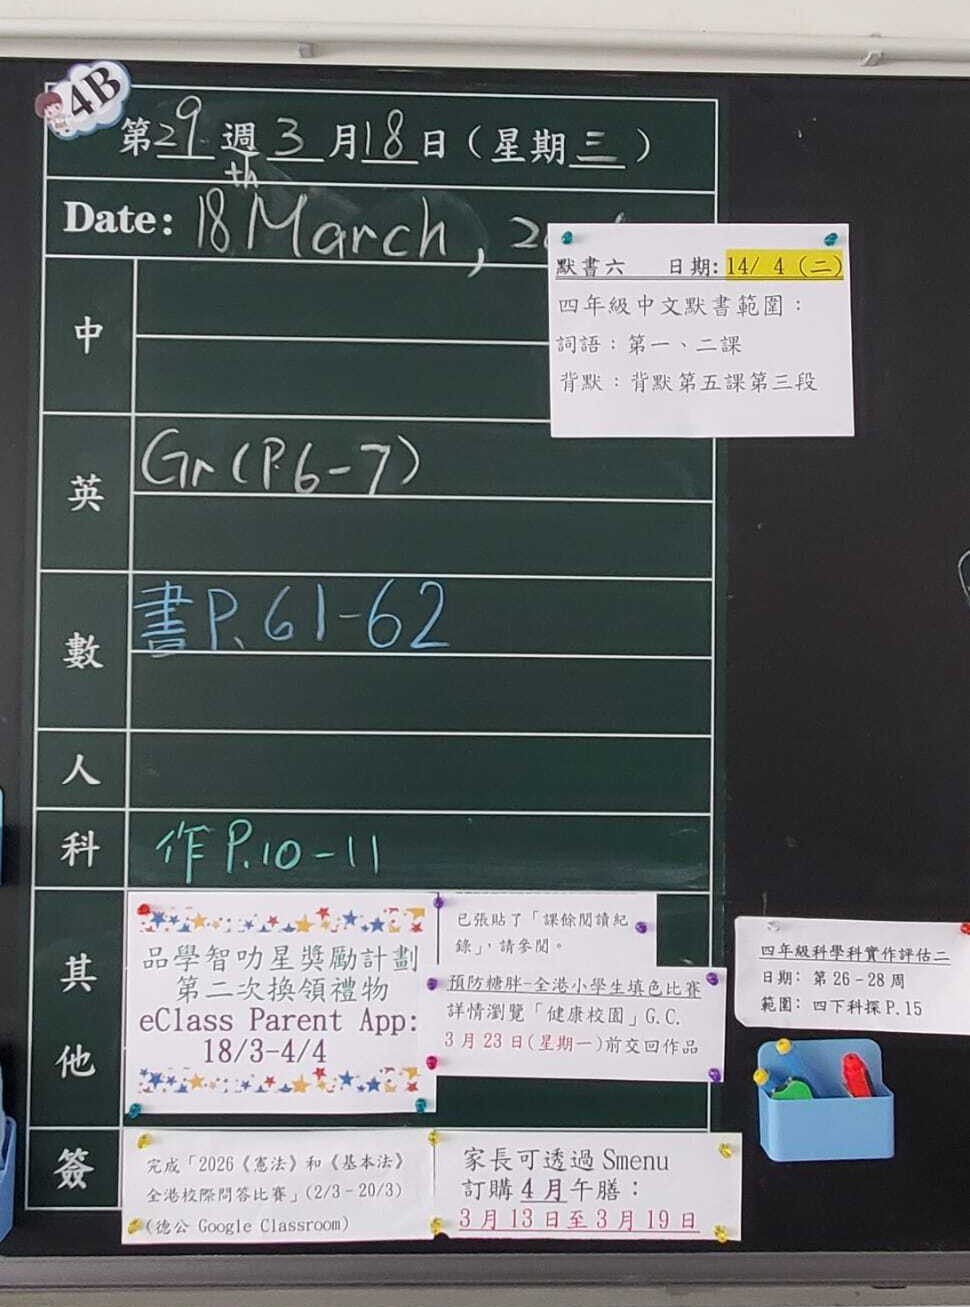 4B
第29週3月18日(星期三)
Date: 18th March,
默書六 日期: 14/ 4 (二)
四年級中文默書範圍：
詞語：第一、二課
背默：背默第五課第三段
中
英 Gr (P.6-7)
數 書P.61-62
人
科 作P.10-11
其他
品學智叻星獎勵計劃
第二次換領禮物
eClass Parent App:
18/3-4/4
已張貼了「課餘閱讀紀
錄」，請參閱。
預防糖胖-全港小學生填色比賽
詳情瀏覽「健康校園」G.C.
3月23日(星期一)前交回作品
四年級科學科實作評估二
日期: 第26-28周
範圍: 四下科探P.15
簽
完成「2026《憲法》和《基本法》
全港校際問答比賽」(2/3-20/3)
(德公 Google Classroom)
家長可透過 Smenu
訂購 4月午膳：
3月13日至3月19日